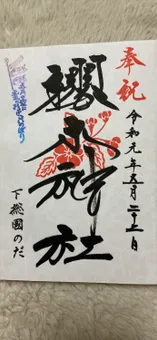 奉祝
令和元年五月二十二日
櫻木神社
下総國のだ